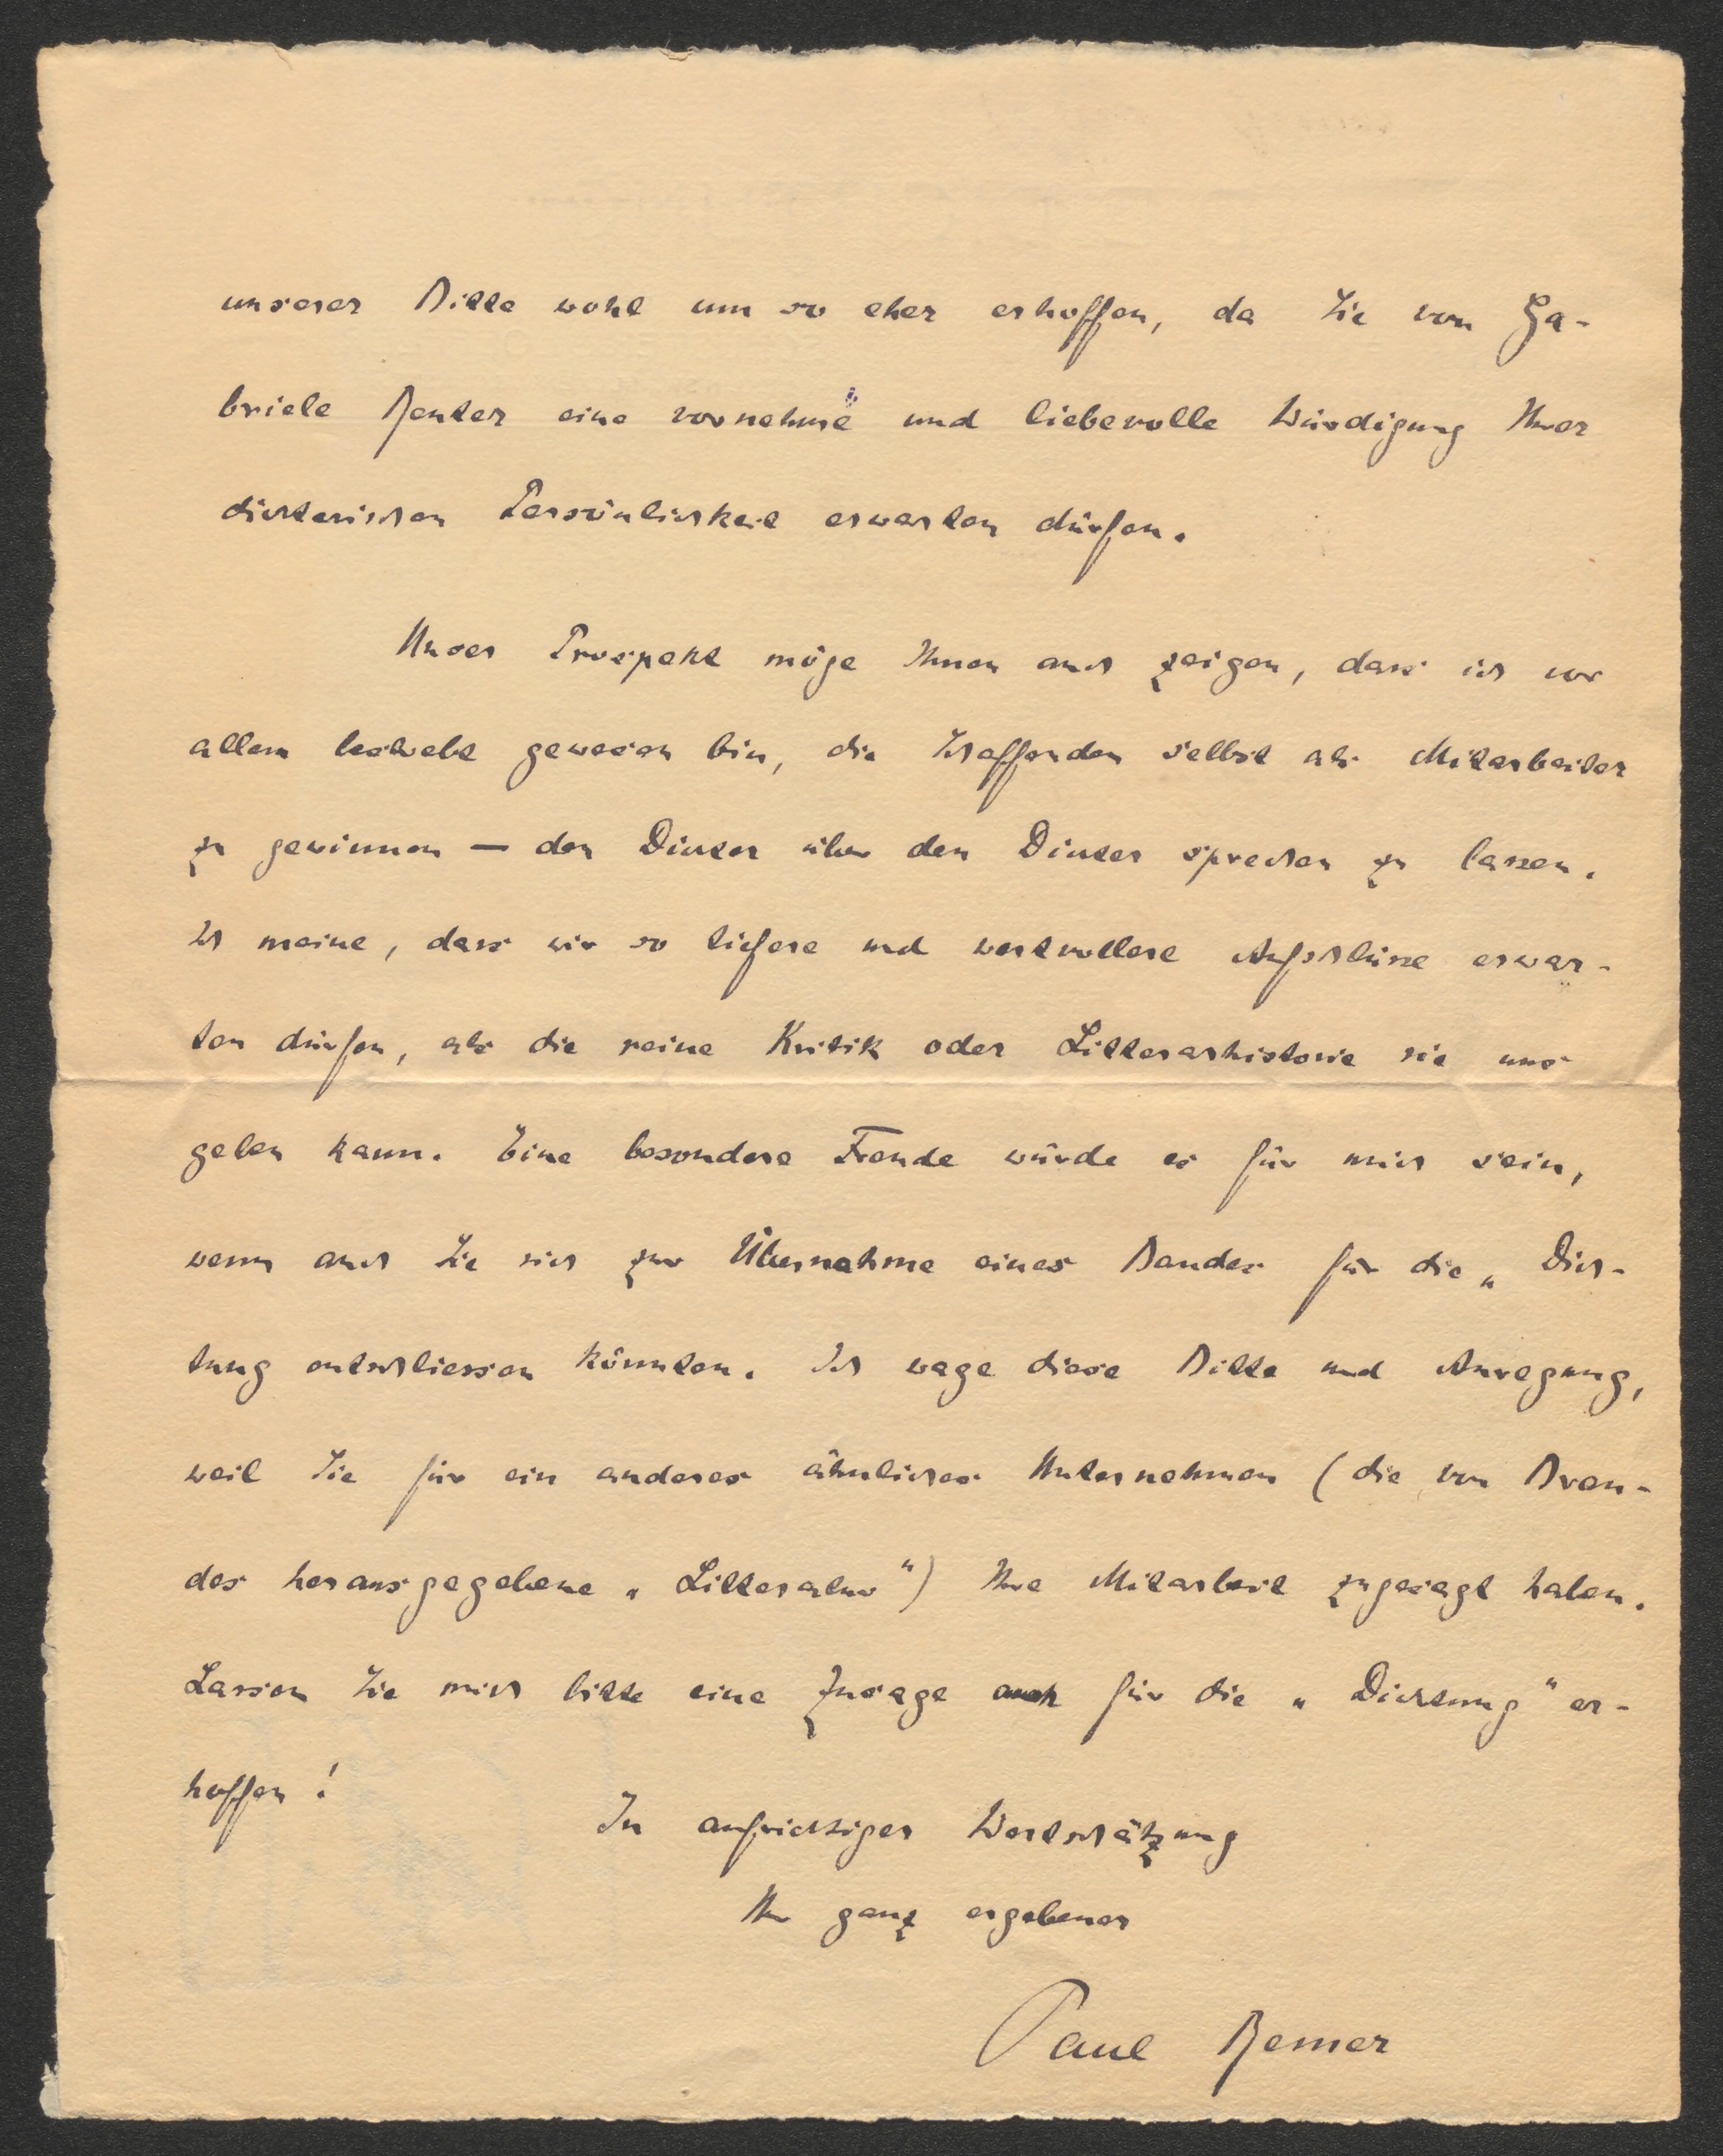 unserer Bitte wohl um so eher erhoffen, da Sie von Ga-
briele Reuter eine vornehme und liebevolle Würdigung Ihrer
dichterischen Persönlichkeit erwarten dürfen.
Unser Prospekt möge Ihnen auch zeigen, dass ich vor
allem bestrebt gewesen bin, die Schaffenden selbst als Mitarbeiter
zu gewinnen — den Dichter über den Dichter sprechen zu lassen.
Ich meine, dass wir so tiefere und wertvollere Aufschlüsse erwar-
ten dürfen, als die reine Kritik oder Litterarhistorie sie uns
geben kann. Eine besondere Freude würde es für mich sein,
wenn auch Sie sich zur Übernahme eines Bandes für die „Dich-
tung entschliessen könnten. Ich wage diese Bitte und Anregung,
weil Sie für ein anderes ähnliches Unternehmen (die von Bran-
des herausgegebene „Litteratur“) Ihre Mitarbeit zugesagt haben.
Lassen Sie mich bitte eine Zusage auch für die „Dichtung“ er-
hoffen!
In aufrichtiger Wertschätzung
Ihr ganz ergebener
Paul Remer